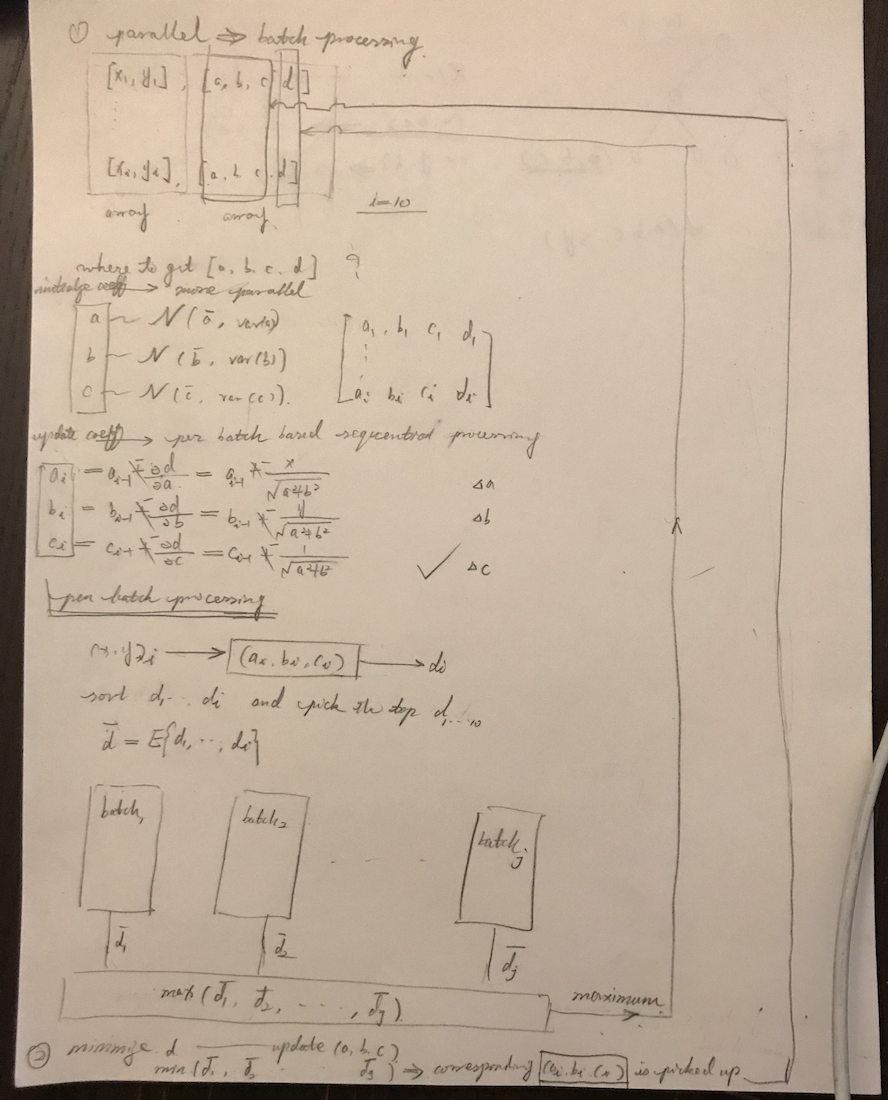 ① parallel ⇒ batch processing
[x₁, y₁], [a, b, c, d]
[xᵢ, yᵢ], [a, b, c, d]
array array
i=10
where to get [a, b, c, d] ?
initialize coeff → more parallel
a ~ N(ā, var(a)) [a₁, b₁, c₁, d₁
b ~ N(b̄, var(b)) ⋮
c ~ N(c̄, var(c)). aᵢ bᵢ cᵢ dᵢ]
update coeff → per batch based sequential processing
aᵢ = aᵢ₋₁ - ∂d/∂a = aᵢ₋₁ - x/√(a²+b²) Δa
bᵢ = bᵢ₋₁ - ∂d/∂b = bᵢ₋₁ - y/√(a²+b²) Δb
cᵢ = cᵢ₋₁ - ∂d/∂c = cᵢ₋₁ - 1/√(a²+b²) ✓ Δc
per batch processing
(x, y)ᵢ → (aᵢ, bᵢ, cᵢ) → dᵢ
sort d₁ ... dᵢ and pick the top d₁...₁₀
d̄ = E{d₁, ..., dᵢ}
batch₁ batch₂ ... batchⱼ
d̄₁ d̄₂ d̄ⱼ
max(d̄₁, d̄₂, ..., d̄ⱼ) → maximum
② minimize d — update (a, b, c)
min(d̄₁, d̄₂ d̄ⱼ) ⇒ corresponding (aᵢ, bᵢ, cᵢ) is picked up